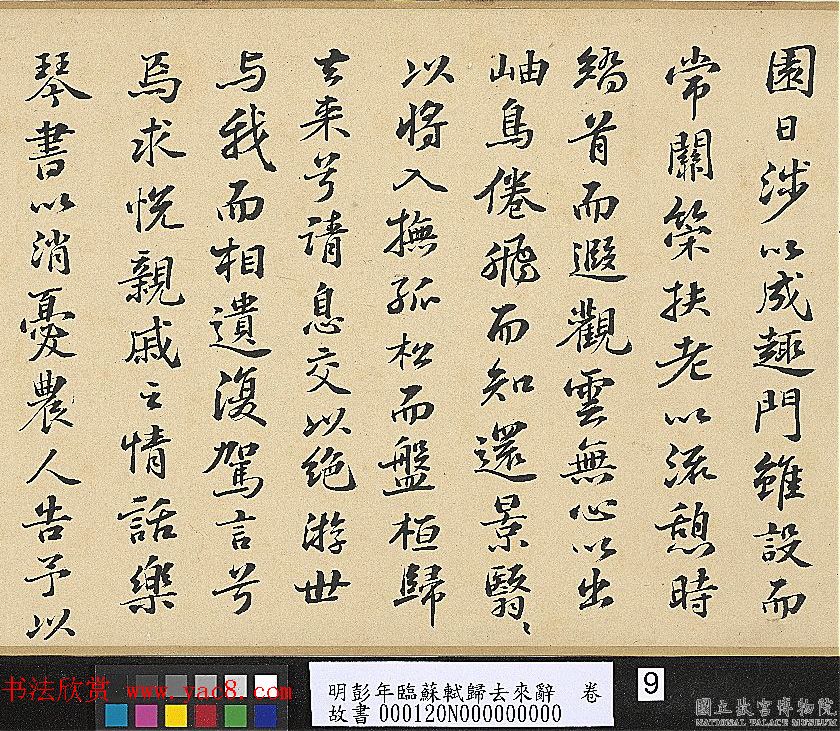 園日涉以成趣門雖設而
常關策扶老以流憩時
矯首而遐觀雲無心以出
岫鳥倦飛而知還景翳、
以將入撫孤松而盤桓歸
去来兮請息交以絶游世
与我而相遺復駕言兮
焉求悦親戚之情話樂
琴書以消憂農人告予以
书法欣赏 www.yac8.com
明彭年臨蘇軾歸去來辭 卷
故書000120N000000000
9
國立故宮博物院
NATIONAL PALACE MUSEUM